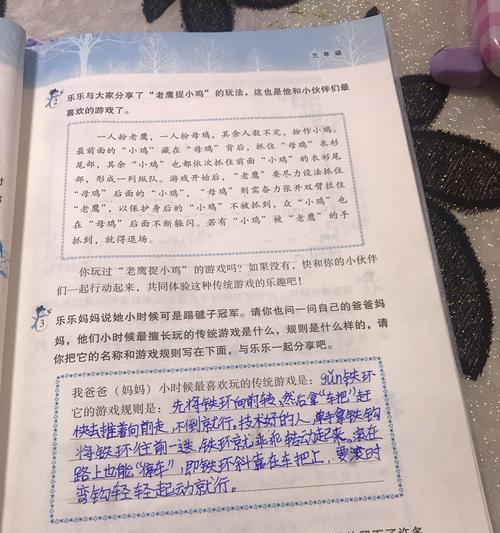 三年级
2 乐乐与大家分享了“老鹰捉小鸡”的玩法，这也是他和小伙伴们最
喜欢的游戏了。
一人扮老鹰，一人扮母鸡，其余人数不定，扮作小鸡。
最前面的“小鸡”藏在“母鸡”背后，抓住“母鸡”衣衫
尾部，其余“小鸡”也都依次抓住前面“小鸡”的衣衫尾
部，形成一列纵队。游戏开始后，“老鹰”要尽力设法抓住
“母鸡”后面的“小鸡”，“母鸡”则需奋力张开双臂拦住
“老鹰”，以保护身后的“小鸡”不被抓到，众“小鸡”也
在“母鸡”后面不断躲闪。若有“小鸡”被“老鹰”的手
抓到，就得退场。
你玩过“老鹰捉小鸡”的游戏吗？如果没有，快和你的小伙伴
们一起行动起来，共同体验这种传统游戏的乐趣吧！
3 乐乐妈妈说她小时候可是踢毽子冠军。请你也问一问自己的爸爸妈
妈，他们小时候最擅长玩的传统游戏是什么，规则是什么样的，请
你把它的名称和游戏规则写在下面，与乐乐一起分享吧。
我爸爸（妈妈）小时候最喜欢玩的传统游戏是：gǔn铁环
它的游戏规则是：先将铁环向前转，然后拿“车把”赶
快去推着向前走，不倒就行，技术好的人，单手拿铁钩
将铁环往前一送，铁环就乖乖转动起来，滚在
路上也能“停车”，即铁环斜靠在车把上，要滚时
弯钩轻轻起动就行。